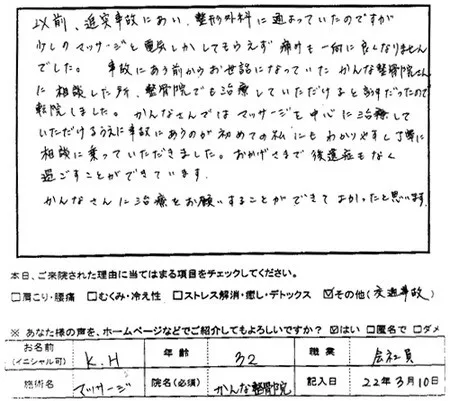 以前、追突事故にあい、整形外科に通っていたのですが
少しのマッサージと電気しかしてもらえず痛みも一向に良くなりません
でした。事故にあう前からお世話になっていたかんな整骨院さん
に相談した所、整骨院でも治療していただけると言う事だったので
転院しました。かんなさんではマッサージを中心に治療して
いただけるうえに事故にあうのが初めての私にもわかりやすく丁寧に
相談に乗っていただきました。おかげさまで後遺症もなく
過ごすことができています。
かんなさんに治療をお願いすることができてよかったと思います。
本日、ご来院された理由に当てはまる項目をチェックしてください。
□肩こり・腰痛 □むくみ・冷え性 □ストレス解消・癒し・デトックス ☑その他(交通事故)
※ あなた様の声を、ホームページなどでご紹介してもよろしいですか? ☑はい □匿名で □ダメ
お名前(イニシャル可) K.H 年齢 32 職業 会社員
施術名 マッサージ 院名(必須) かんな整骨院 記入日 22年3月10日